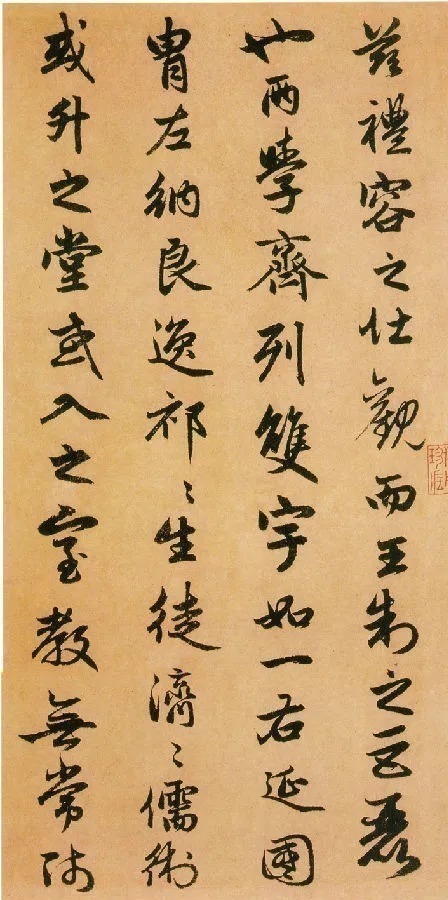 茲禮容之壯觀而王制之巨麗
也兩學齊列雙宇如一右延國
胄左納良逸祁〻生徒濟〻儒術
或升之堂或入之室教無常師